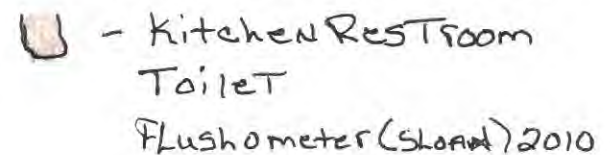 - Kitchen Restroom
Toilet
Flushometer (Sloan) 2010